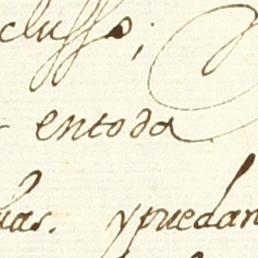 clusso;
entoda
uas. ypuedan